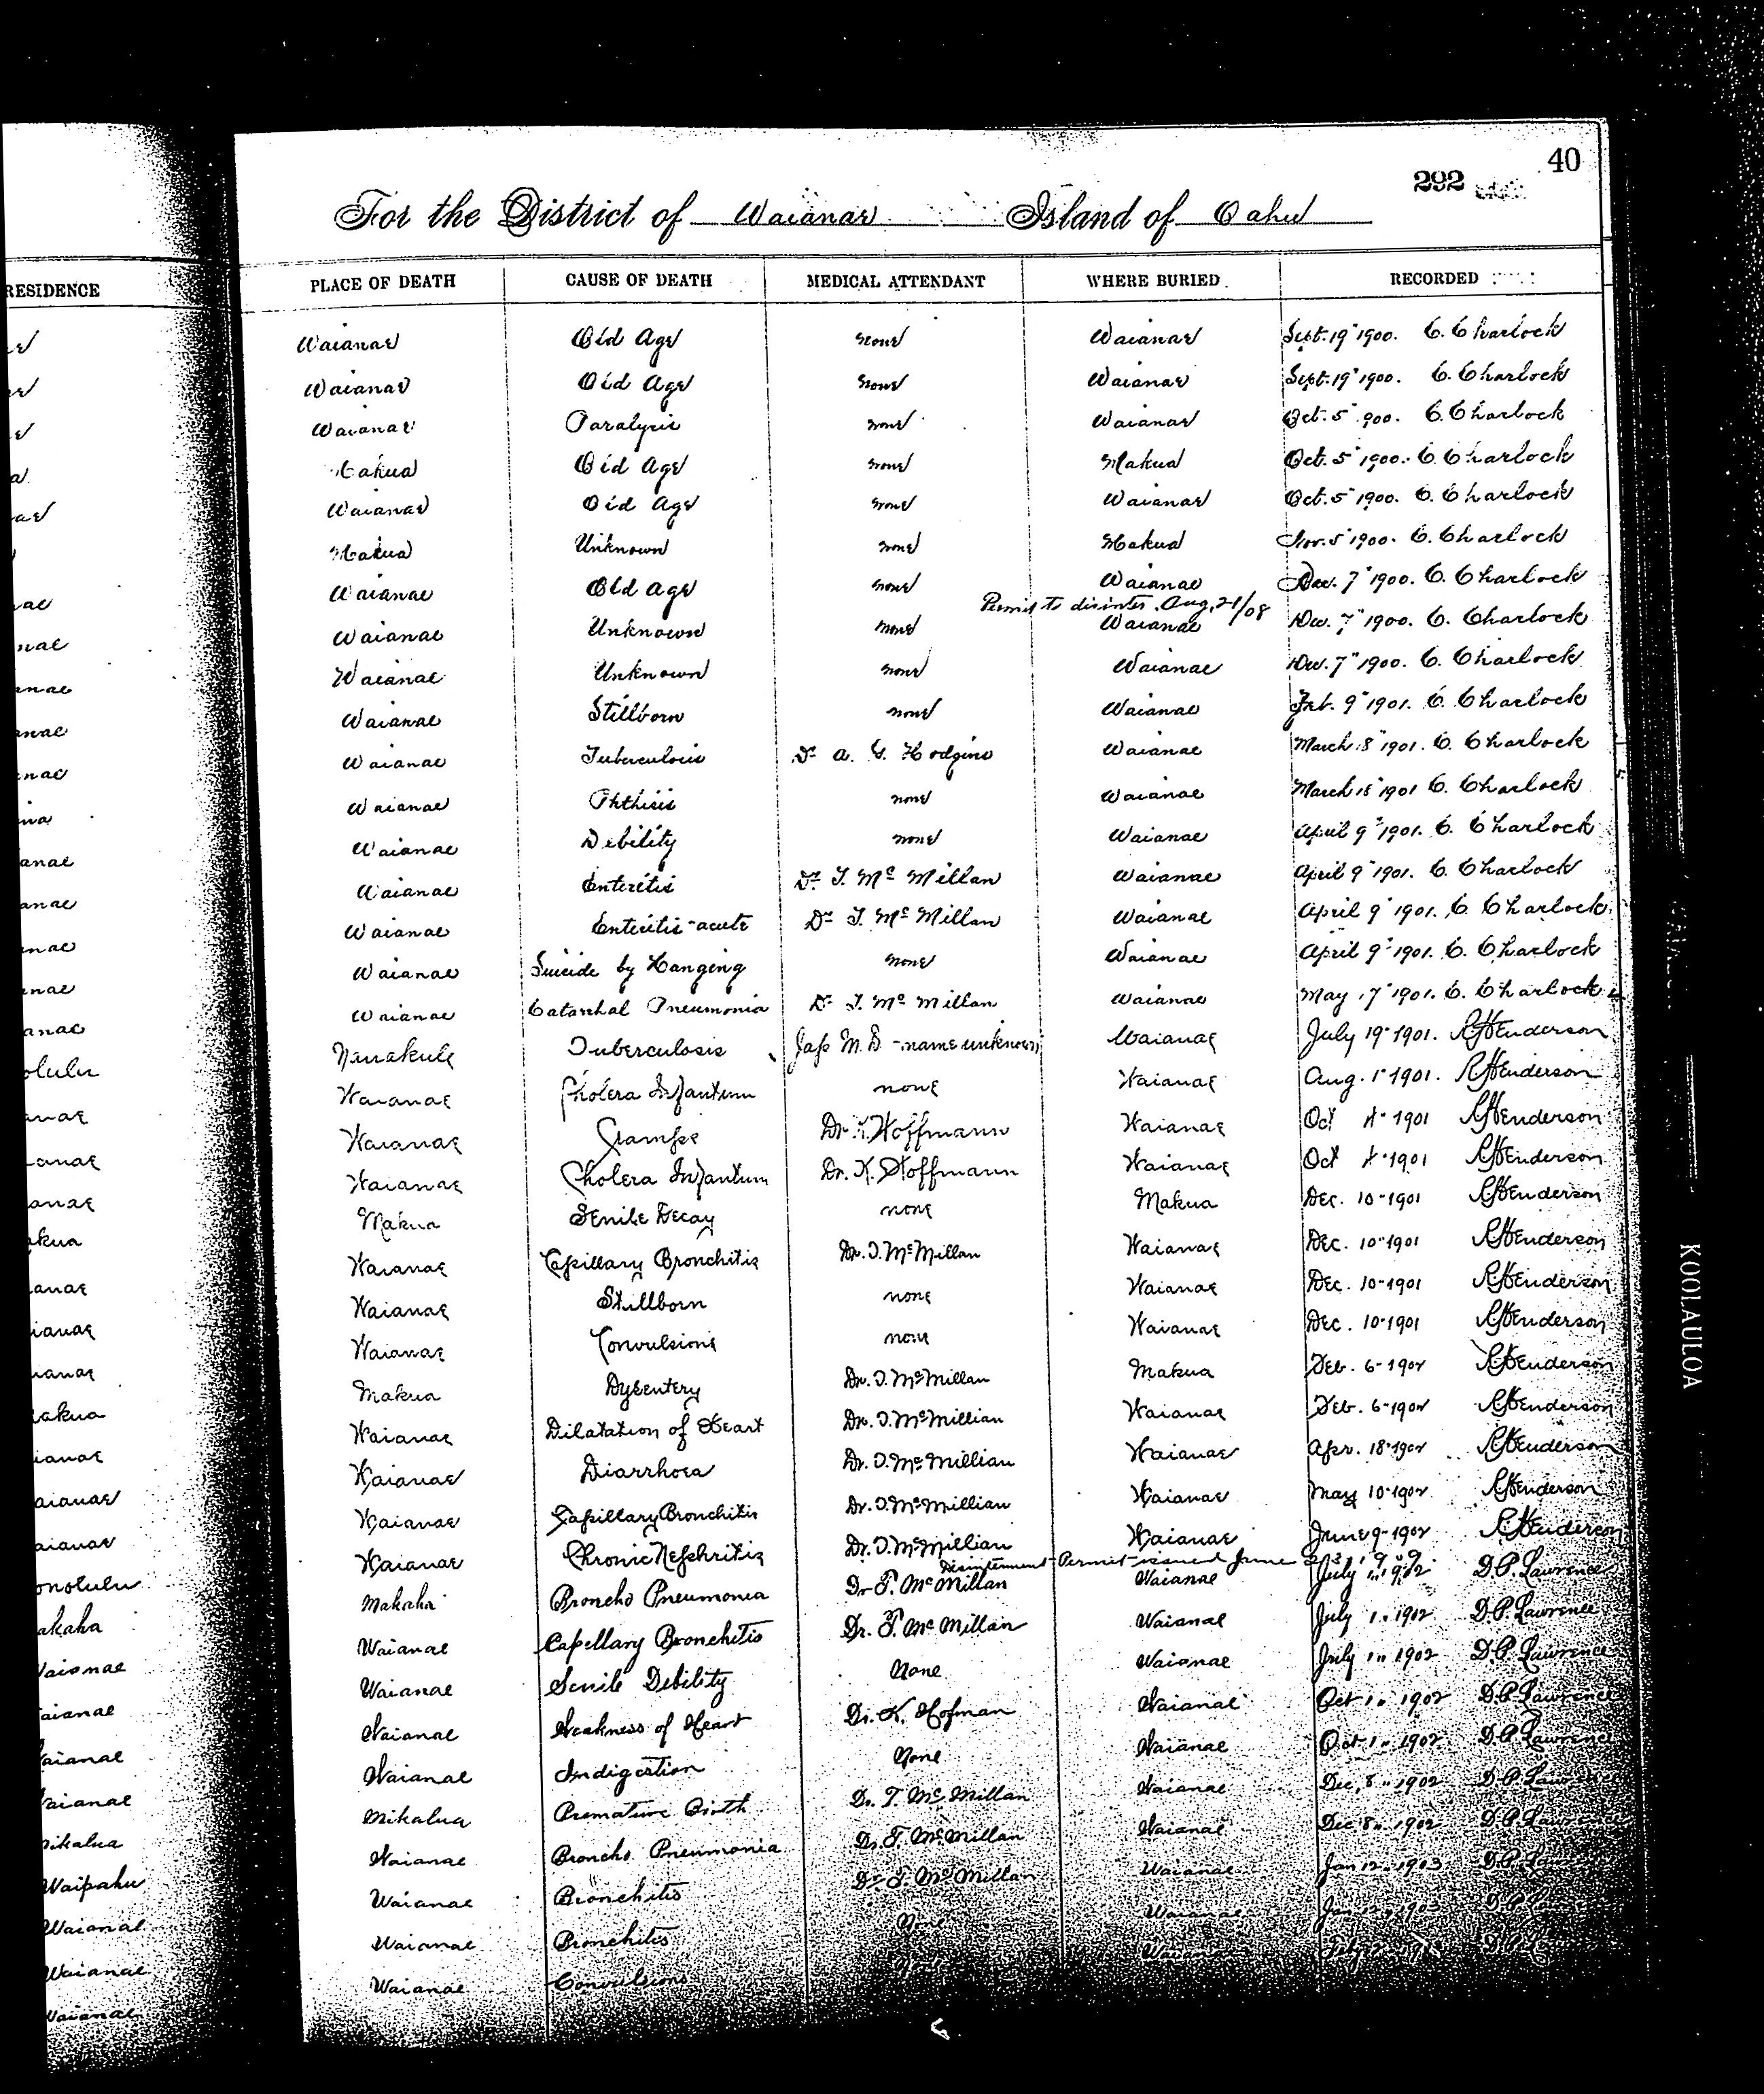 40
292
For the District of Waianae Island of Oahu
RESIDENCE PLACE OF DEATH CAUSE OF DEATH MEDICAL ATTENDANT WHERE BURIED RECORDED
Waianae Old Age none Waianae Sept. 19" 1900. C. Charlock
Waianae Old Age none Waianae Sept. 19" 1900. C. Charlock
Waianae Paralysis none Waianae Oct. 5" 900. C. Charlock
Makua Old Age none Makua Oct. 5" 1900. C. Charlock
Waianae Old Age none Waianae Oct. 5" 1900. C. Charlock
Makua Unknown none Makua Nov. 5" 1900. C. Charlock
Waianae Old Age none Waianae Dec. 7" 1900. C. Charlock
Permit to disinter Aug. 21/08
Waianae Unknown none Waianae Dec. 7" 1900. C. Charlock
Waianae Unknown none Waianae Dec. 7" 1900. C. Charlock
Waianae Stillborn none Waianae Feb. 9" 1901. C. Charlock
Waianae Tuberculosis Dr A. G. Hodgins Waianae March 18" 1901. C. Charlock
Waianae Phthisis none Waianae March 18" 1901 C. Charlock
Waianae Debility none Waianae April 9" 1901. C. Charlock
Waianae Enteritis Dr T. Mc Millan Waianae April 9" 1901. C. Charlock
Waianae Enteritis-acute Dr T. Mc Millan Waianae April 9" 1901. C. Charlock
Waianae Suicide by Hanging none Waianae April 9" 1901. C. Charlock
Waianae Catarrhal Pneumonia Dr T. Mc Millan Waianae May 17" 1901. C. Charlock
Nanakuli Tuberculosis Jap M.D - name unknown Waianae July 19" 1901. R.H.Enderson
olulu Waianae Cholera Infantum none Waianae Aug. 1" 1901. R.H.Enderson
Waianae Cramps Dr. K. Hoffmann Waianae Oct 4" 1901 R.H.Enderson
Waianae Cholera Infantum Dr. K. Hoffmann Waianae Oct 4" 1901 R.H.Enderson
Makua Senile Decay none Makua Dec. 10-1901 R.H.Enderson
Waianae Capillary Bronchitis Dr. T. McMillan Waianae Dec. 10-1901 R.H.Enderson
Waianae Stillborn none Waianae Dec. 10-1901 R.H.Enderson
Waianae Convulsions none Waianae Dec. 10-1901 R.H.Enderson
Makua Dysentery Dr. T. McMillan Makua Feb. 6-1902 R.H.Enderson
Waianae Dilatation of Heart Dr. T. McMillian Waianae Feb. 6-1902 R.H.Enderson
Waianae Diarrhoea Dr. T. McMillian Waianae Apr. 18-1902 R.H.Enderson
Waianae Capillary Bronchitis Dr. T. McMillian Waianae May 10-1902 R.H.Enderson
Waianae Chronic Nephritis Dr. T. McMillian Waianae June 9-1902 R.H.Enderson
Disinterment Permit issued June 1909.
Makaha Broncho Pneumonia Dr T. McMillan Waianae July 1" 1902 D.P. Lawrence
Waianae Capillary Bronchitis Dr. T. Mc Millan Waianae July 1" 1902 D.P. Lawrence
Waianae Senile Debility None Waianae July 1" 1902 D.P. Lawrence
Waianae Weakness of Heart Dr. K. Hofman Waianae Oct 1" 1902 D.P. Lawrence
Waianae Indigestion None Waianae Oct. 1" 1902 D.P. Lawrence
Mikalua Premature Birth Dr. T. Mc Millan Waianae Dec. 8" 1902 D.P. Lawrence
Waianae Broncho Pneumonia Dr. T. McMillan Waianae Dec 8" 1902 D.P. Lawrence
Waianae Bronchitis Dr T. McMillan Waianae Jan 12" 1903 D.P.
Waianae Bronchitis None Waianae Jan 1903
Waianae Convulsions Waianae
KOOLAULOA